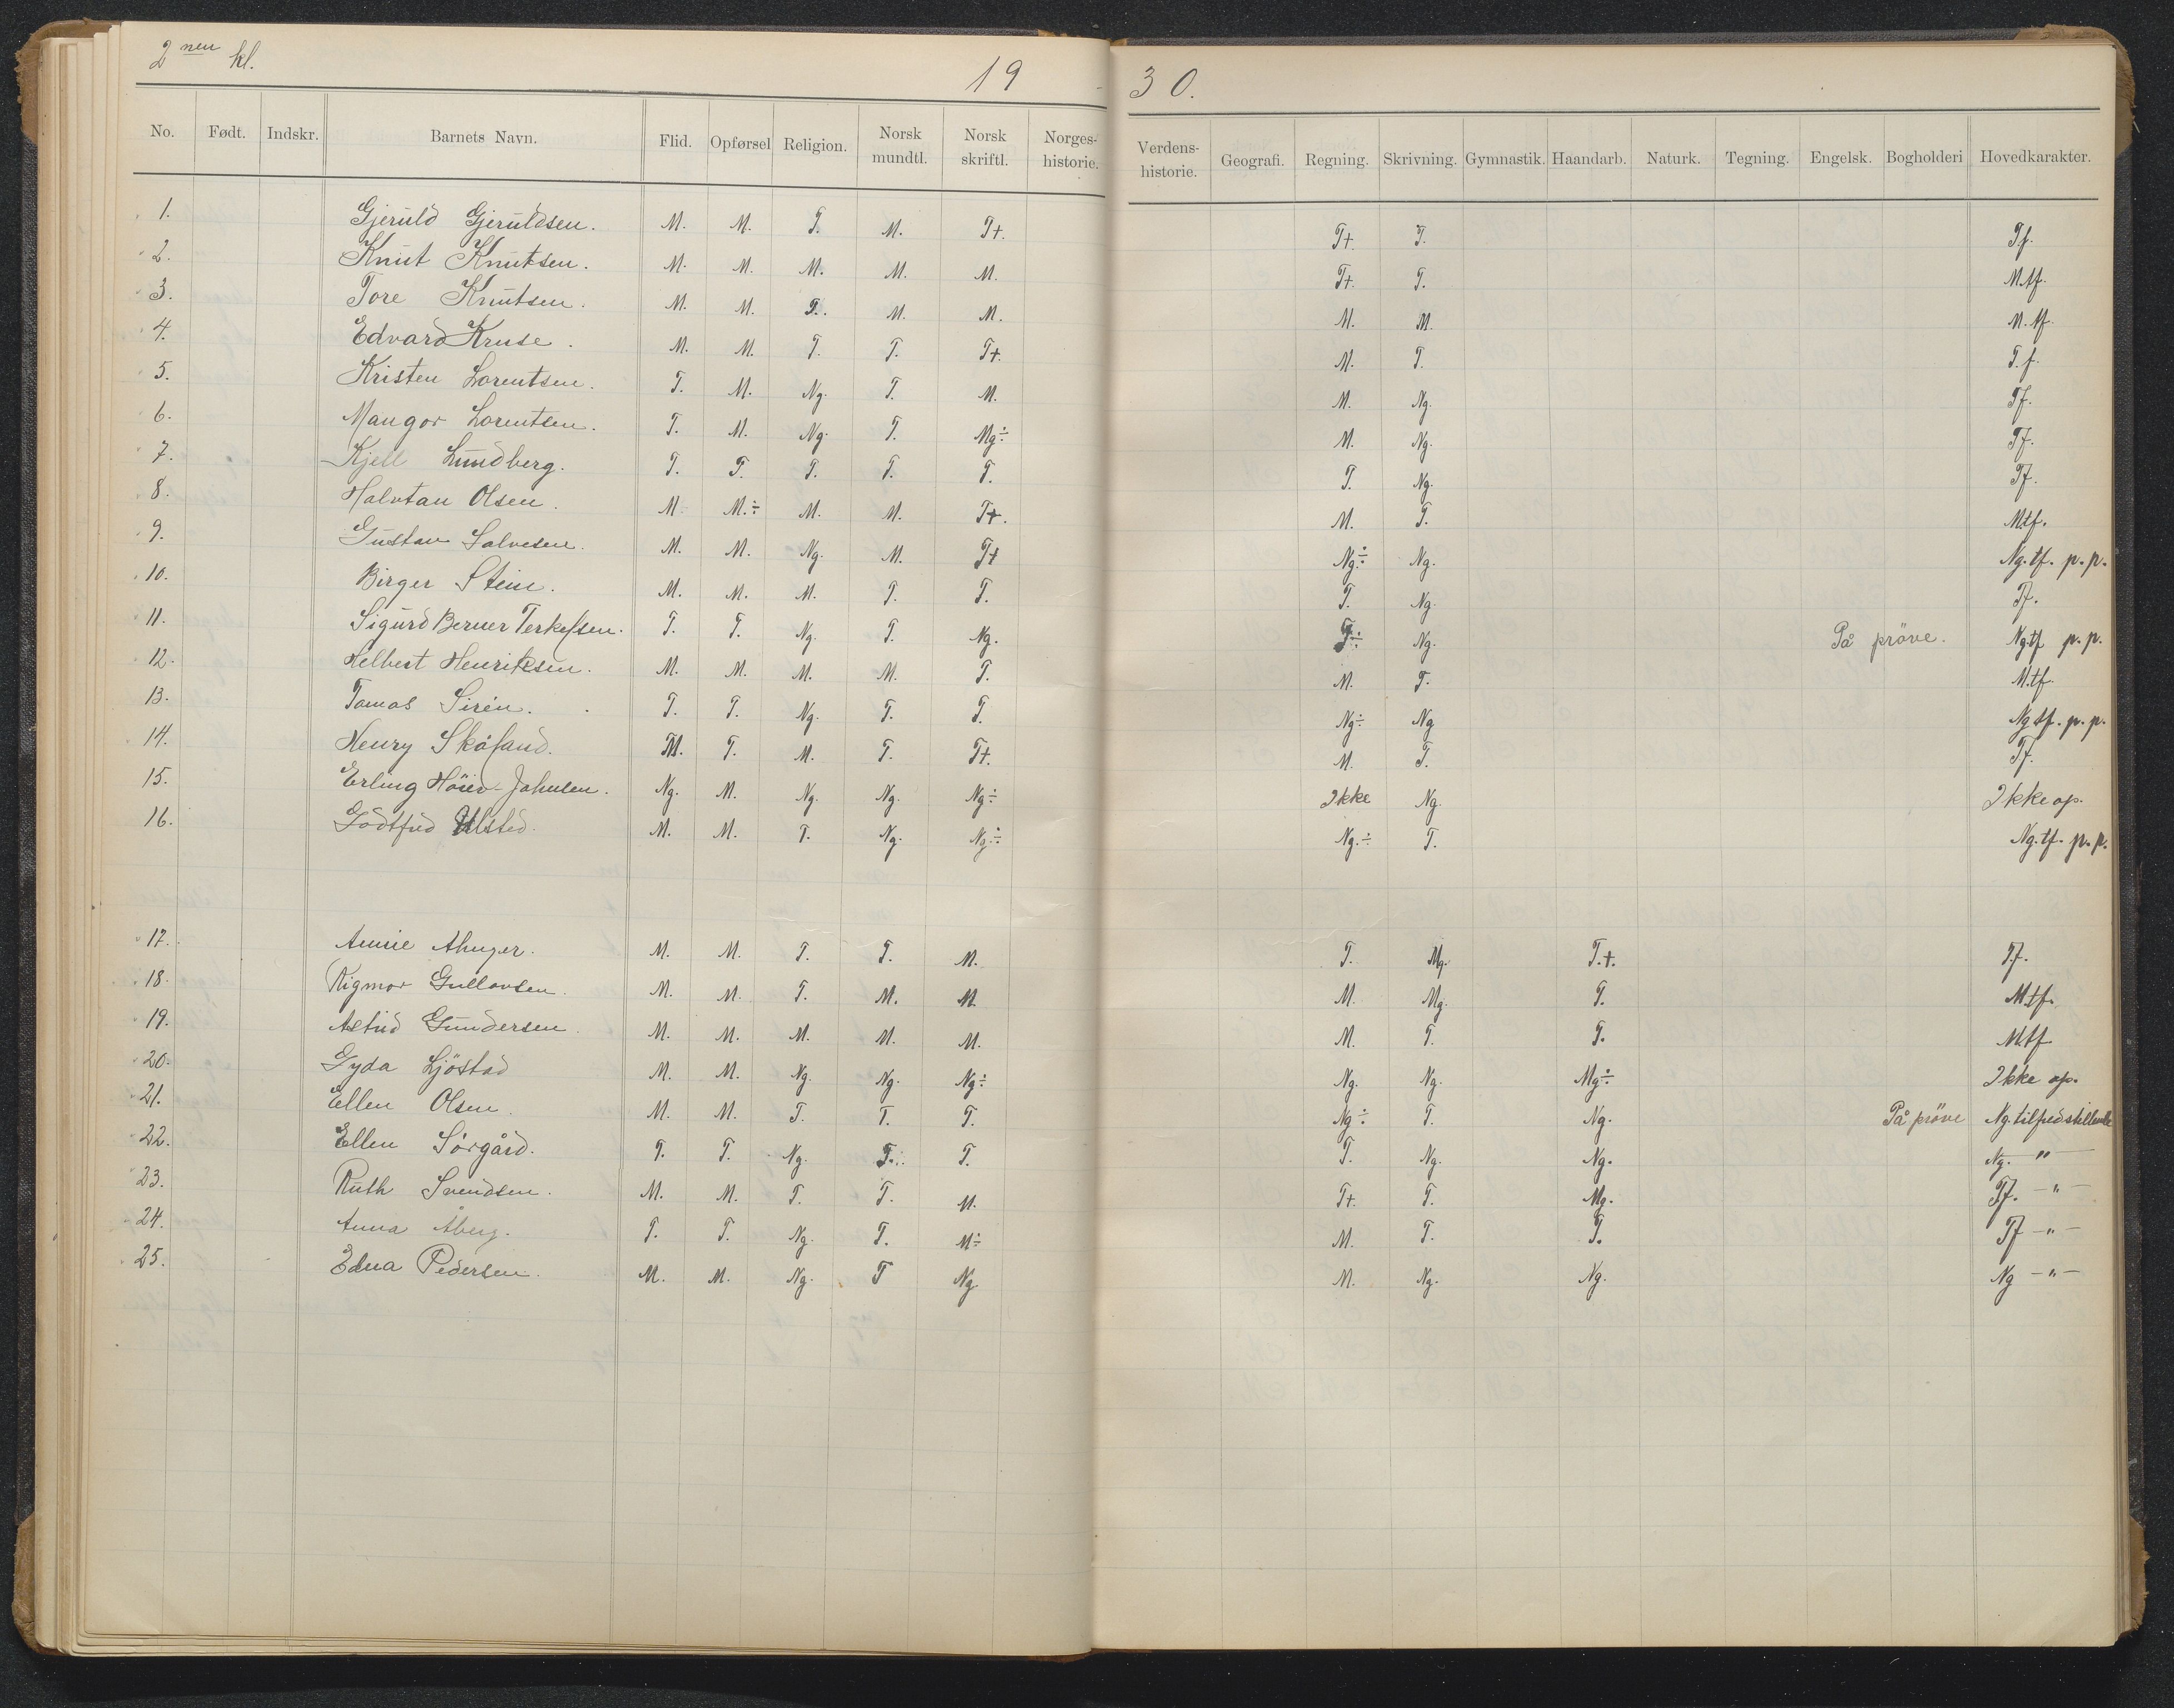 2nen kl.
19 - 30.
No. Født. Indskr. Barnets Navn. Flid. Opførsel Religion. Norsk mundtl. Norsk skriftl. Norges-historie. Verdens-historie. Geografi. Regning. Skrivning. Gymnastik. Haandarb. Naturk. Tegning. Engelsk. Bogholderi Hovedkarakter.
1. Gjeruld Gjeruldsen. M. M. T. M. T+. T+. T. Tf.
2. Knut Knutsen. M. M. M. M. M. T+. T. M.tf.
3. Tore Knutsen. M. M. T. M. M. M. M. M.tf.
4. Edvard Kruse. M. M. T. T. T+. M. T. T.f.
5. Kristen Lorentsen. T. M. Ng. T. M. M. Ng. Tf.
6. Mangor Lorentsen. T. M. Ng. T. Mg÷ M. Ng. Tf.
7. Kjell Lundberg. T. T. T. T. T. T. Ng. Tf.
8. Halvtan Olsen. M. M.÷ M. M. T+. M. T. M.tf.
9. Gustav Salvesen. M. M. Ng. M. T+ Ng÷ Ng. Ng.tf. p.p.
10. Birger Stein. M. M. M. T. T. T. Ng. Tf.
11. Sigurd Berner Terkelsen. T. T. Ng. T. Ng. T÷ Ng. På pröve. Ng.tf p.p.
12. Helbert Henriksen. M. M. M. M. T. M. T. M.tf.
13. Tomas Sirén. T. T. Ng. T. T. Ng÷ Ng Ng.tf. p.p.
14. Henry Skåland. M. T. M. T. T+. M. T. Tf.
15. Erling Höier-Johnsen. Ng. M. Ng. Ng. Ng÷ Ikke Ng. Ikke op.
16. Godtfred Ulsted. M. M. T. Ng. Ng÷ Ng.÷ T. Ng.tf. p.p.
17. Annie M. M. T. T. M. T. Mg. T.+. T.f.
18. Rigmor Gullovsen. M. M. T. M. M. M. Mg. T. M.tf.
19. Astrid Gundersen. M. M. M. M. M. M. T. T. M.tf.
20. Gyda Ljöstad M. M. Ng. Ng. Ng÷ Ng. Ng. Mg÷ Ikke op.
21. Ellen Olsen. M. M. T. T. T. Ng÷ T. Ng. På pröve Ng. tilfredstillende
22. Ellen Sörgård. T. T. Ng. T. T. T. Ng. Ng. Ng. "
23. Ruth Svendsen. M. M. T. T. M. T+. T. Mg. Tf. - " -
24. Anna Åberg. T. T. Ng. T. M÷ M. T. T. Tf - " -
25. Edna Pedersen. M. M. Ng. T Ng M. Ng. Ng. Ng - " -